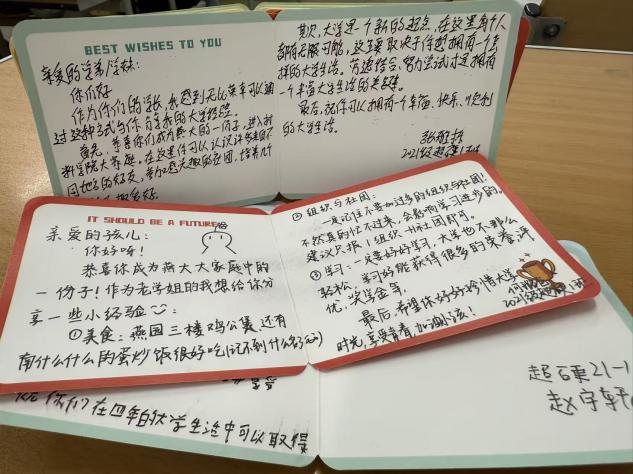 BEST WISHES TO YOU
亲爱的学弟/学妹:
你们好
作为你们的学长,我感到无比荣幸可以通
过这种方式与你分享我的大学经验。
首先,恭喜你们成为燕大的一份子,进入材
料学院大家庭。在这里你可以认识许多来自不
同地方的好友,参加感兴趣的社团,培养几个
其次,大学是一个新的起点,在这里每个人
都有无限可能,这主要取决于你想拥有一个怎
样的大学生活。劳逸结合,努力尝试才是拥有
一个丰富大学生活的关键。
最后,祝你可以拥有一个幸福、快乐、顺利
的大学生活。
IT SHOULD BE A FUTURE
亲爱的孩儿:
你好呀!
恭喜你成为燕大大家庭中的
一份子!作为老学姐的我想给你分
享一些小经验
①美食:燕园三楼鸡公煲还有
南什么什么的蛋炒饭很好吃(记不到什么名了)
②组织与社团:
一定记住不要加过多的组织与社团!
不然真的忙不过来,会影响学习进步的。
建议只报1组织一个社团即可。
③学习:一定要好好学习,大学也不那么
轻松,学习好能获得很多的荣誉,评
优,奖学金等。
最后,希望你好好珍惜大学
时光,享受青春,加油孩!
你们在四年的大学生活中可以取得
21-1
赵宇轩